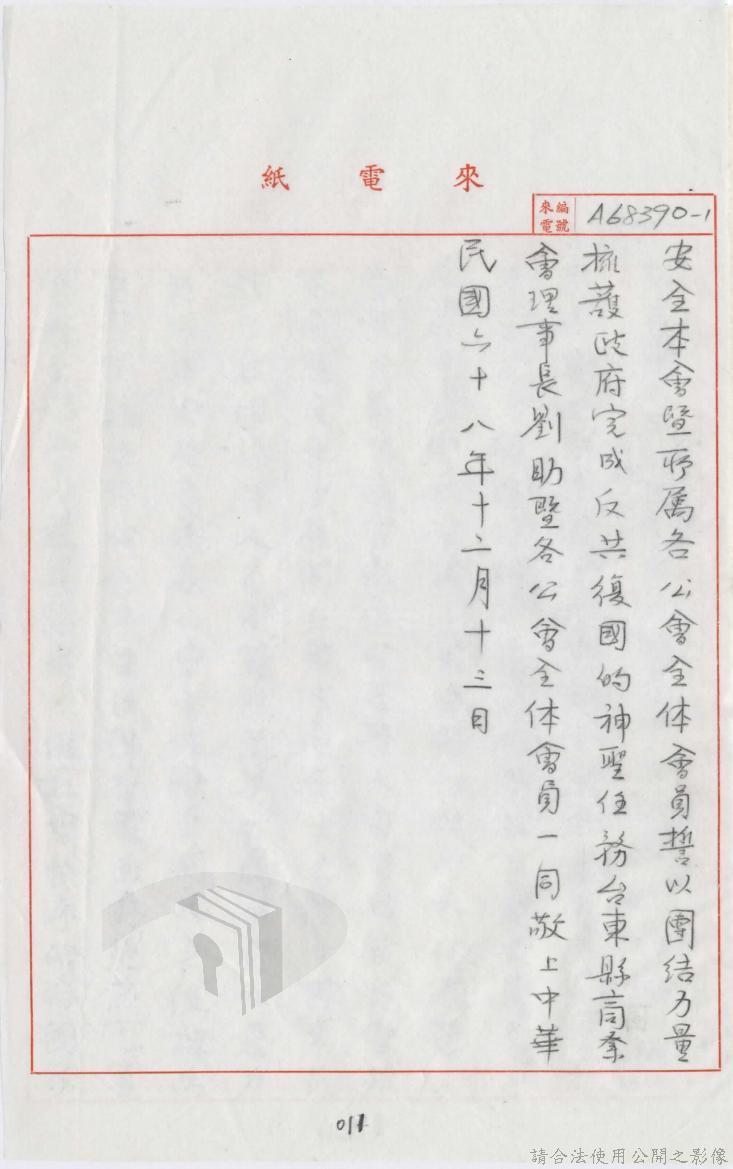 來電紙
來電編號 A68390-1
安全本會暨所属各公會全体會員誓以團結力量
擁護政府完成反共復國的神聖任務台東縣商業
會理事長劉助暨各公會全体會員一同敬上中華
民國六十八年十二月十三日
011
請合法使用公開之影像